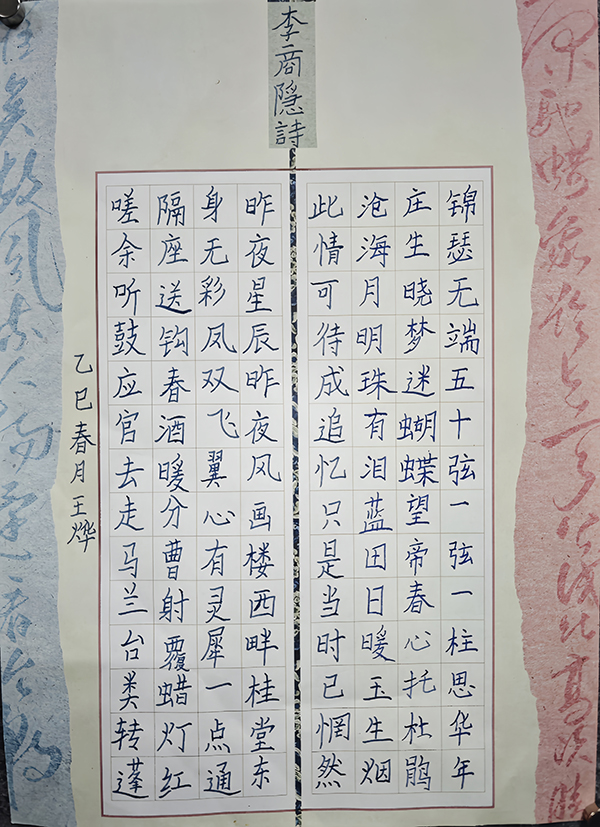 李商隐詩
锦瑟无端五十弦一弦一柱思华年
庄生晓梦迷蝴蝶望帝春心托杜鹃
沧海月明珠有泪蓝田日暖玉生烟
此情可待成追忆只是当时已惘然
昨夜星辰昨夜风画楼西畔桂堂东
身无彩凤双飞翼心有灵犀一点通
隔座送钩春酒暖分曹射覆蜡灯红
嗟余听鼓应官去走马兰台类转蓬
乙巳春月王烨